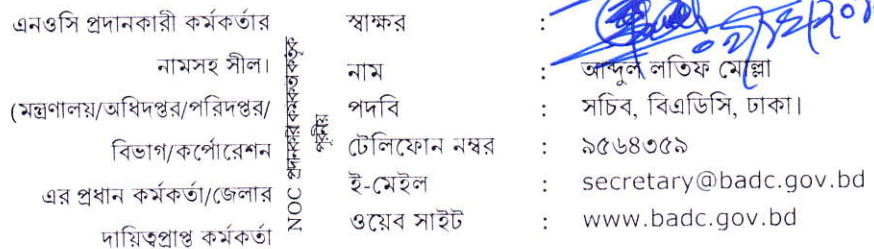 এনওসি প্রদানকারী কর্মকর্তার
নামসহ সীল।
(মন্ত্রণালয়/অধিদপ্তর/পরিদপ্তর/
বিভাগ/কর্পোরেশন
এর প্রধান কর্মকর্তা/জেলার
দায়িত্বপ্রাপ্ত কর্মকর্তা
NOC প্রদানকারী কর্মকর্তা কর্তৃক
পূরণীয়
স্বাক্ষর :
নাম : আব্দুল লতিফ মোল্লা
পদবি : সচিব, বিএডিসি, ঢাকা।
টেলিফোন নম্বর : ৯৫৬৪৩৫৯
ই-মেইল : secretary@badc.gov.bd
ওয়েব সাইট : www.badc.gov.bd